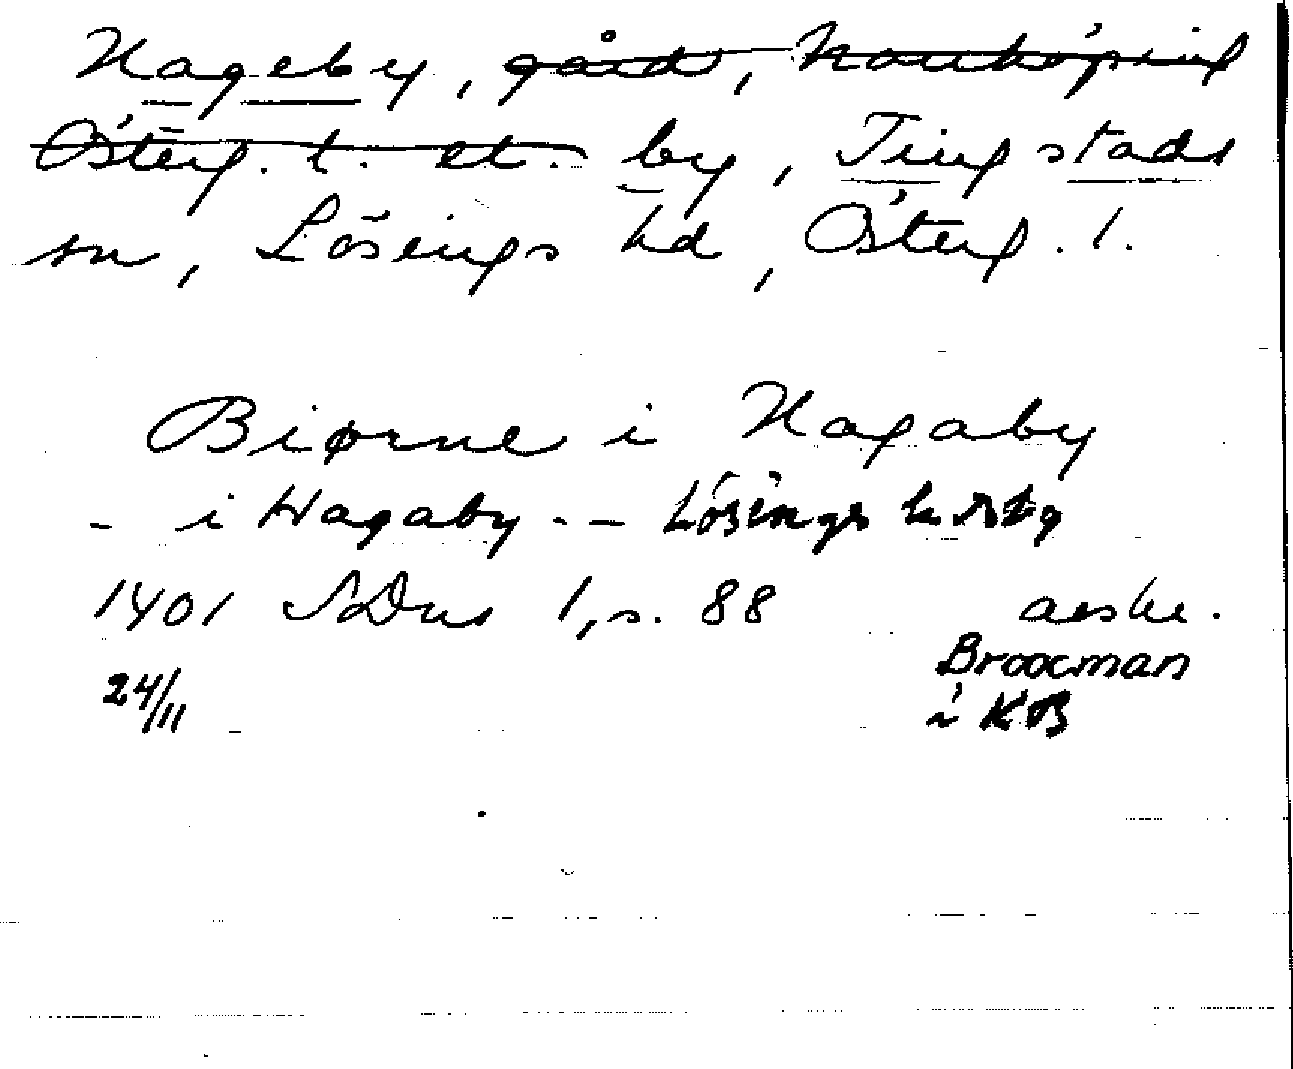 Hageby, gård, Norrköping
Österg. l. et. by, Tingstads
sn, Lösings hd, Österg. l.
Biørne i Hagaby
- i Hagaby -- Lösings h Östg
1401 SDns 1, s. 88 avskr.
Broocman
24/11 i KB